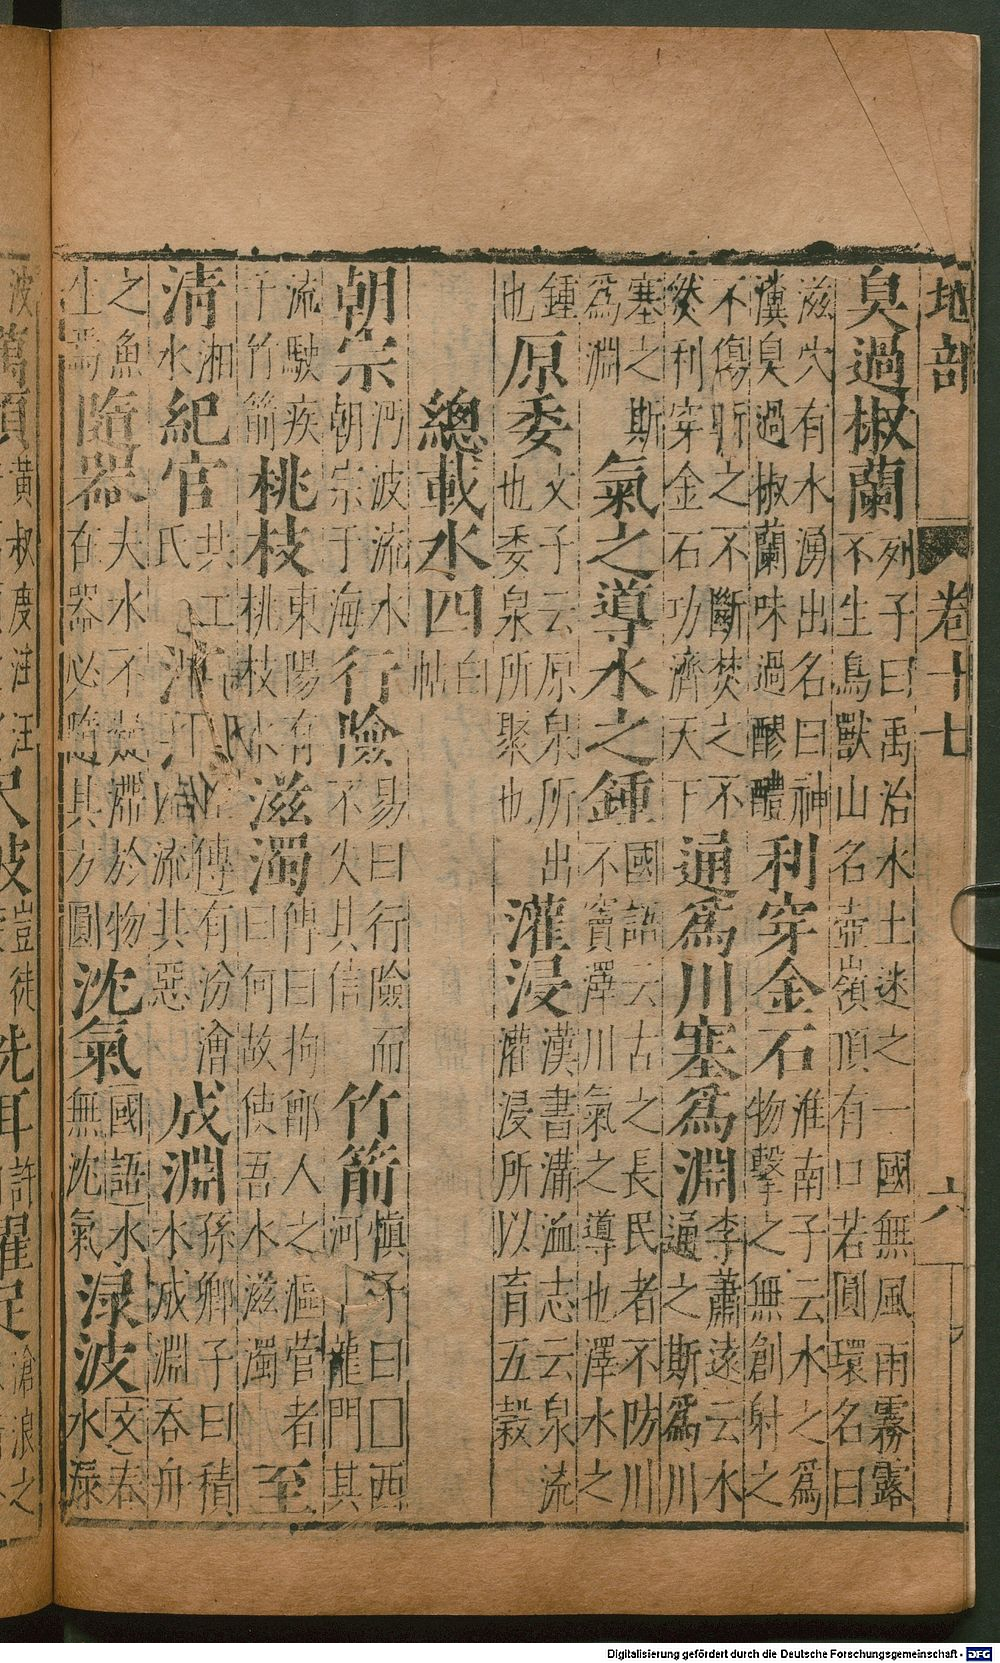 地部 卷十七 六
臭過椒蘭 列子曰禹治水土迷之一國無風雨霧露不生鳥獸山名壺嶺頂有口若圓環名曰
滋穴有水湧出名曰神瀵臭過椒蘭味過醪醴 利穿金石 淮南子云水之為物擊之無創射之
不傷斫之不斷焚之不然利穿金石功濟天下 通為川塞為淵 李蕭遠云水通之斯為川
塞之斯為淵 氣之導水之鍾 國語云古之長民者不防川不竇澤川氣之導也澤水之
鍾也 原委 文子云原泉所出也委泉所聚也 灌浸 漢書溝洫志云泉流灌浸所以育五穀
總載水四 白帖
朝宗 沔波流水朝宗于海 行險 易曰行險而不失其信 竹箭 慎子曰囗西河 龍門其
流駛疾于竹箭 桃枝 東陽有桃枝水 滋濁 傳曰拘鄫人之漚菅者曰何故使吾水滋濁 至
清 湘水 紀官 共工氏 傳有汾澮流其惡 成淵 孫卿子曰積水成淵吞舟
之魚生焉 隨器 夫水不凝滯於物在器必隨其方圓 沈氣 國語水無沈氣 淥波 文春水淥
波 萬頃 黃叔度汪汪 尺波 豈徒 洗耳 許 濯足 滄浪之
Digitalisierung gefördert durch die Deutsche Forschungsgemeinschaft - DFG